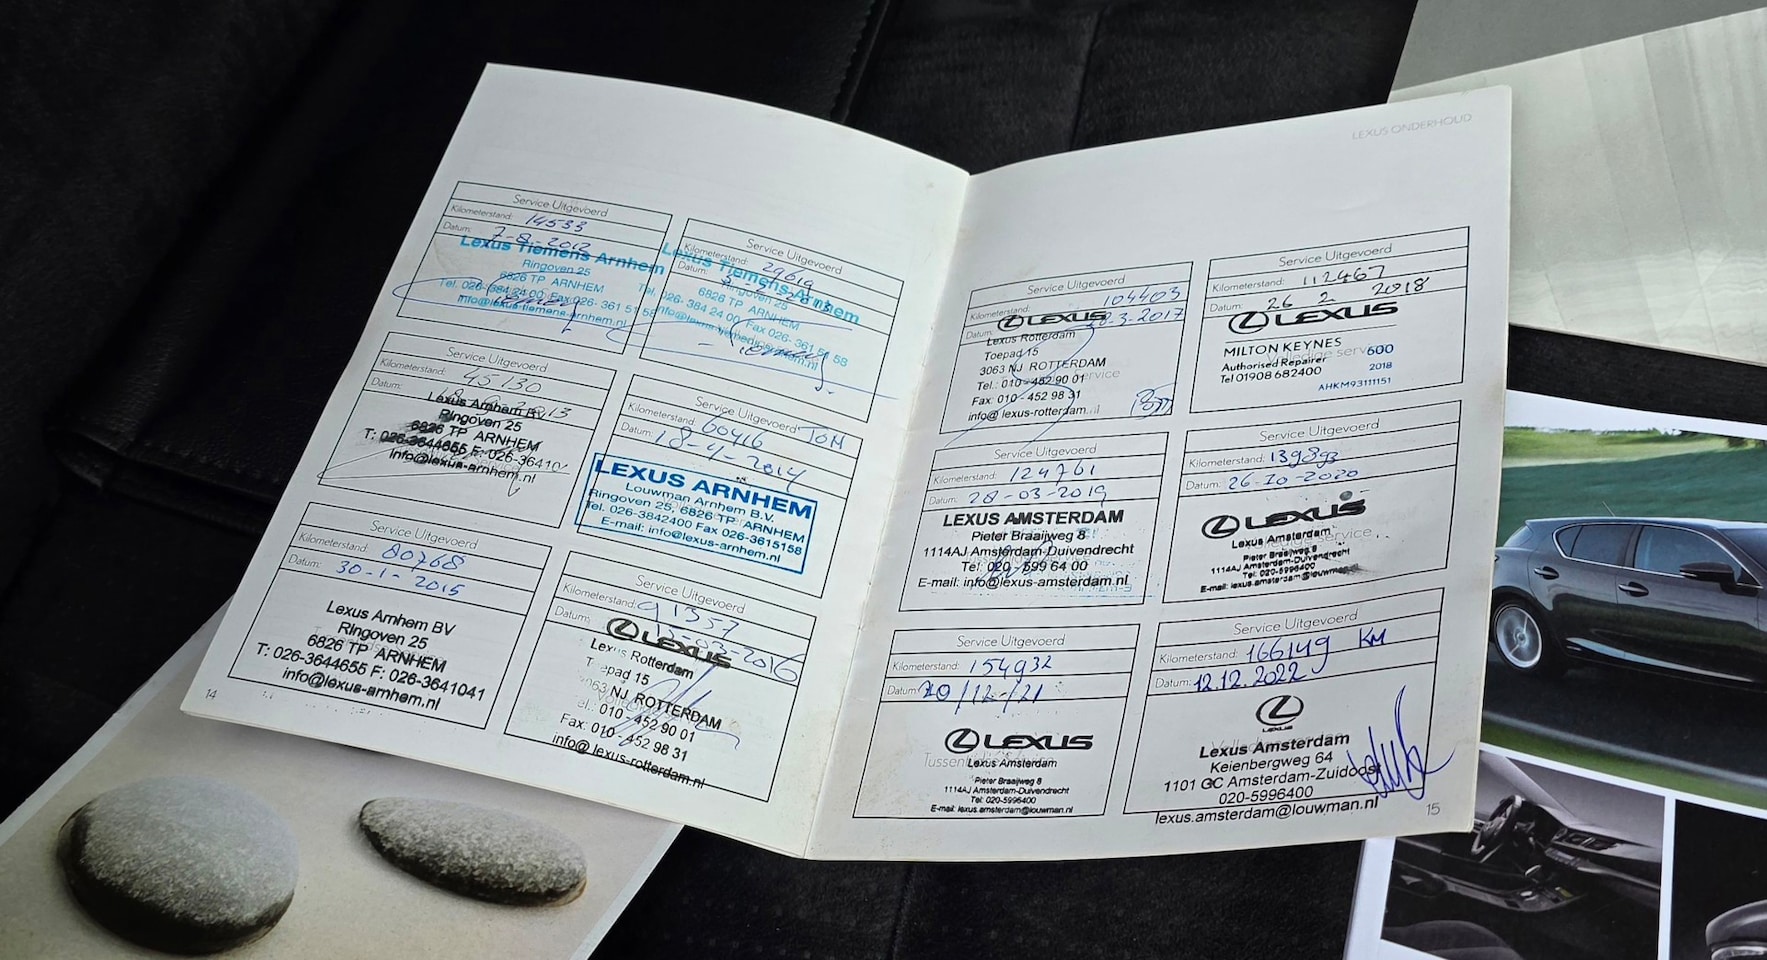 Service Uitgevoerd
Kilometerstand: 14533
Datum: 7-8-2012
Lexus Tiemens Arnhem
Ringoven 25
6826 TP ARNHEM
Tel. 026-384 24 00 Fax 026- 361 51 58
info@lexus-tiemens-arnhem.nl
Service Uitgevoerd
Kilometerstand: 29619
Datum:
Lexus Tiemens Arnhem
Ringoven 25
6826 TP ARNHEM
Tel. 026- 384 24 00 Fax 026- 361 51 58
Service Uitgevoerd
Kilometerstand: 45130
Datum:
Lexus Arnhem BV
Ringoven 25
6826 TP ARNHEM
T: 026-3644655 F: 026-36410
info@lexus-arnhem.nl
Service Uitgevoerd
Kilometerstand: 60416 TOM
Datum: 18-4-2014
LEXUS ARNHEM
Louwman Arnhem B.V.
Ringoven 25, 6826 TP ARNHEM
Tel. 026-3842400 Fax 026-3615158
E-mail: info@lexus-arnhem.nl
Service Uitgevoerd
Kilometerstand: 80768
Datum: 30-1-2015
Lexus Arnhem BV
Ringoven 25
6826 TP ARNHEM
T: 026-3644655 F: 026-3641041
info@lexus-arnhem.nl
14
Service Uitgevoerd
Kilometerstand: 91357
Datum:
LEXUS
Lexus Rotterdam
Toepad 15
3063 NJ ROTTERDAM
Tel.: 010 - 452 90 01
Fax: 010 - 452 98 31
info@lexus-rotterdam.nl
LEXUS ONDERHOUD
Service Uitgevoerd
Kilometerstand: 104403
Datum: 28-3-2017
LEXUS
Lexus Rotterdam
Toepad 15
3063 NJ ROTTERDAM
Tel.: 010 - 452 90 01
Fax: 010 - 452 98 31
info@lexus-rotterdam.nl
Service Uitgevoerd
Kilometerstand: 112467
Datum: 26 2 2018
LEXUS
MILTON KEYNES
Volledige service
Authorised Repairer 600
Tel 01908 682400 2018
AHKM93111151
Service Uitgevoerd
Kilometerstand: 124761
Datum: 28-03-2019
LEXUS AMSTERDAM
Pieter Braaijweg 8
1114AJ Amsterdam-Duivendrecht
Tel: 020 - 599 64 00
E-mail: info@lexus-amsterdam.nl
Service Uitgevoerd
Kilometerstand: 139893
Datum: 26-10-2020
LEXUS
Volledige service
Lexus Amsterdam
Pieter Braaijweg 8
1114AJ Amsterdam-Duivendrecht
Tel: 020-5996400
E-mail: lexus.amsterdam@louwman.nl
Service Uitgevoerd
Kilometerstand: 154932
Datum: 20/12/21
LEXUS
Lexus Amsterdam
Pieter Braaijweg 8
1114AJ Amsterdam-Duivendrecht
Tel: 020-5996400
E-mail: lexus.amsterdam@louwman.nl
Service Uitgevoerd
Kilometerstand: 166149 KM
Datum: 12.12.2022
LEXUS
Lexus Amsterdam
Keienbergweg 64
1101 GC Amsterdam-Zuidoost
020-5996400
lexus.amsterdam@louwman.nl
15